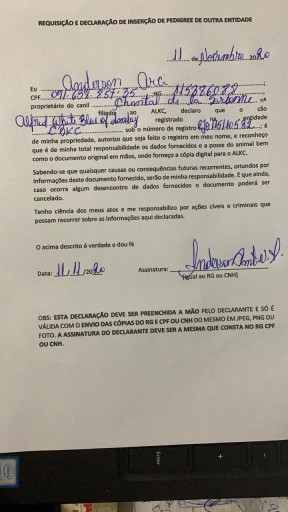 REQUISIÇÃO E DECLARAÇÃO DE INSERÇÃO DE PEDIGREE DE OUTRA ENTIDADE
11 de Novembro 2020
Eu Anderson
CPF RG
proprietário do canil Chantal de la nº
filiado ao ALKC, declaro que o cão
Alfred White Blue of registrado na entidade
CBKC sob o número de registro é
de minha propriedade, autorizo que seja feito o registro em meu nome, e reconheço
que é de minha total responsabilidade os dados fornecidos e a posse do animal bem
como o documento original em mãos, onde forneço a cópia digital para o ALKC.
Sabendo-se que quaisquer causas ou consequências futuras recorrentes, oriundos por
informações deste documento fornecido, serão de minha responsabilidade. E que ainda,
caso ocorra algum desencontro de dados fornecidos o documento poderá ser
cancelado.
Tenho ciência dos meus atos e me responsabilizo por ações cíveis e criminais que
possam recorrer sobre as informações aqui declaradas.
O acima descrito é verdade e dou fé
Data: 11/11/2020 Assinatura:
(Igual ao RG ou CNH)
OBS: ESTA DECLARAÇÃO DEVE SER PREENCHIDA A MÃO PELO DECLARANTE E SÓ É
VÁLIDA COM O ENVIO DAS CÓPIAS DO RG E CPF OU CNH DO MESMO EM JPEG, PNG OU
FOTO. A ASSINATURA DO DECLARANTE DEVE SER A MESMA QUE CONSTA NO RG CPF
OU CNH.
Enter
+
-